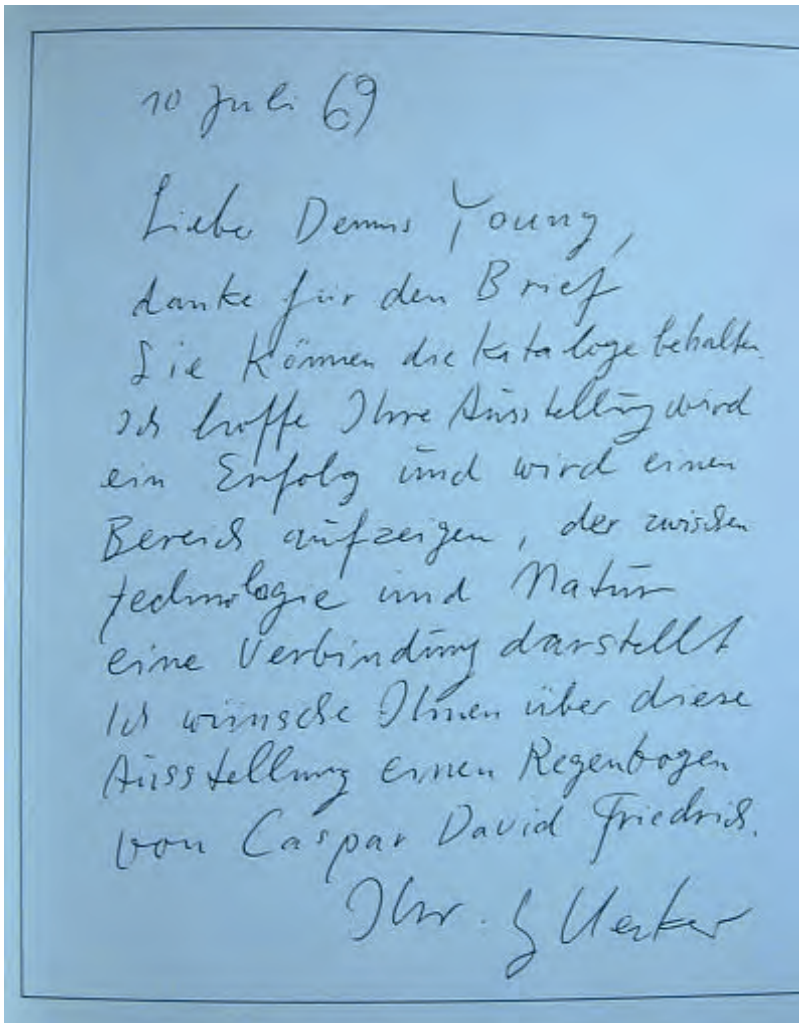 10 Juli 69
Liebe Dennis Young,
danke für den Brief
Sie können die Kataloge behalten.
Ich hoffe Ihre Ausstellung wird
ein Erfolg und wird einen
Bereich aufzeigen, der zwischen
technologie und Natur
eine Verbindung darstellt
Ich wünsche Ihnen über diese
Ausstellung einen Regenbogen
von Caspar David Friedrich.
Ihr. G Uecker